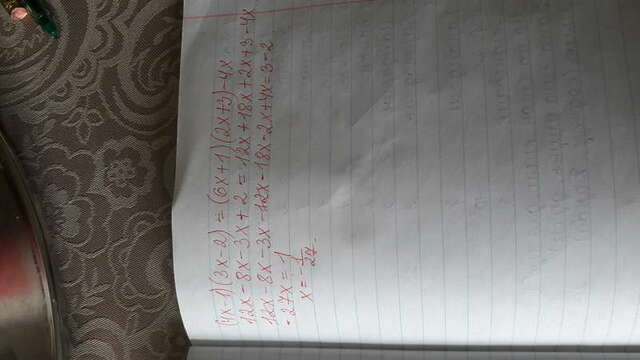 (4x-1)(3x-2) = (6x+1)(2x+3)-4x
12x-8x-3x+2 = 12x+18x+2x+3-4x
12x-8x-3x-12x-18x-2x+4x=3-2
-27x = 1
x = -1/27.